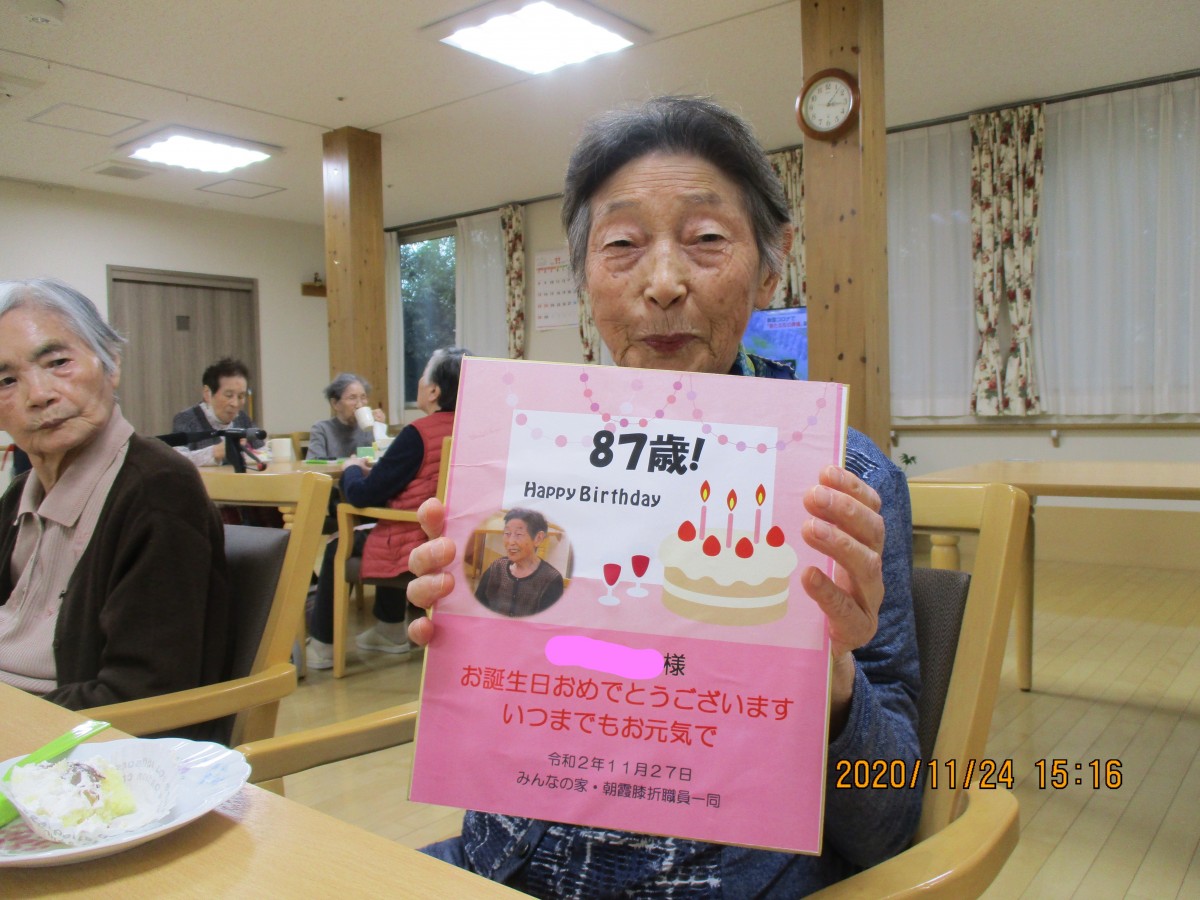 87歳!
Happy Birthday
様
お誕生日おめでとうございます
いつまでもお元気で
令和2年11月27日
みんなの家・朝霞膝折職員一同
2020/11/24 15:16